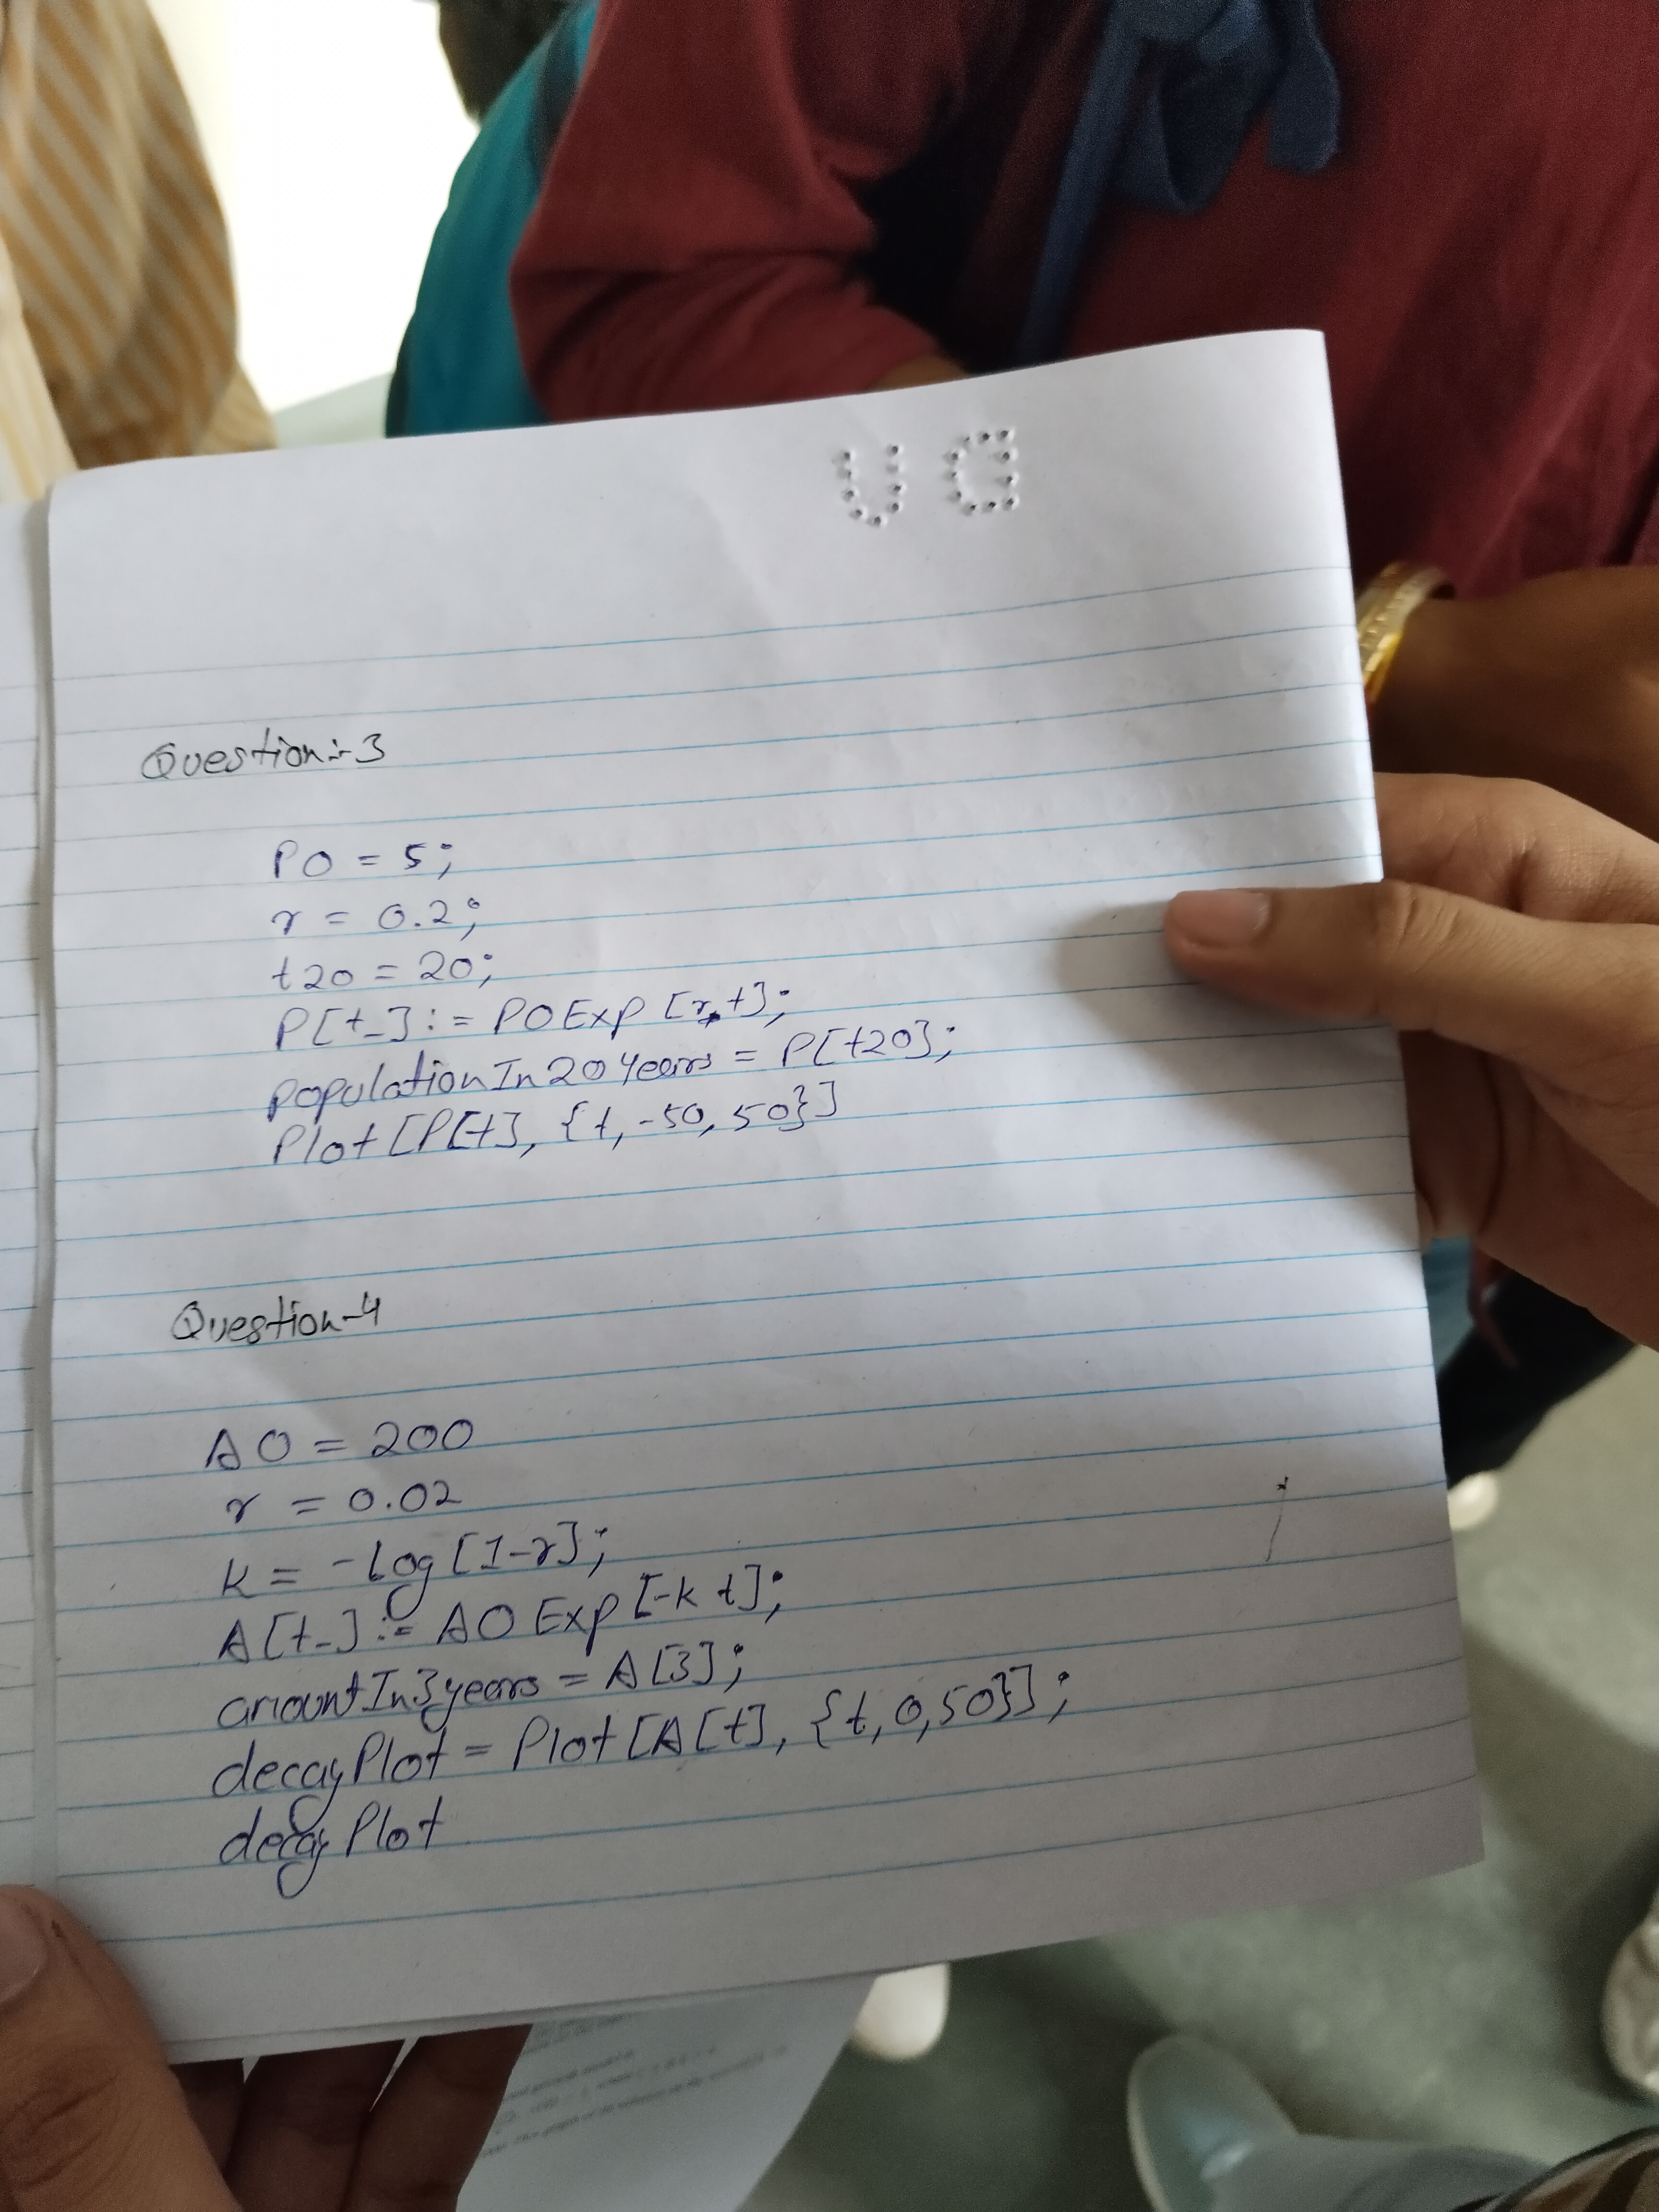 UG
Question:-3
P0 = 5;
r = 0.2;
t20 = 20;
P[t_] := P0 Exp[r*t];
populationIn20Years = P[t20];
Plot[P[t], {t, -50, 50}]
Question-4
A0 = 200
r = 0.02
k = -Log[1-r];
A[t_] := A0 Exp[-k t];
amountIn3years = A[3];
decayPlot = Plot[A[t], {t, 0, 50}];
decayPlot